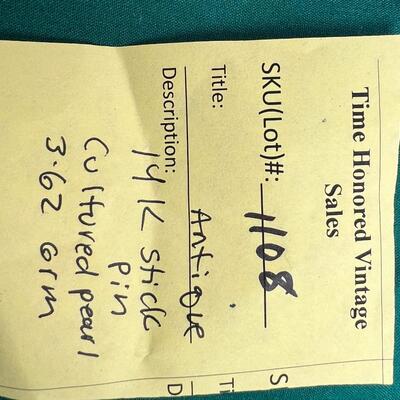 Time Honored Vintage
Sales
SKU(Lot)#: 1108
Title: Antique
Description:
14K stick
pin
Cultured pearl
3.62 Grm
S
Ti
D